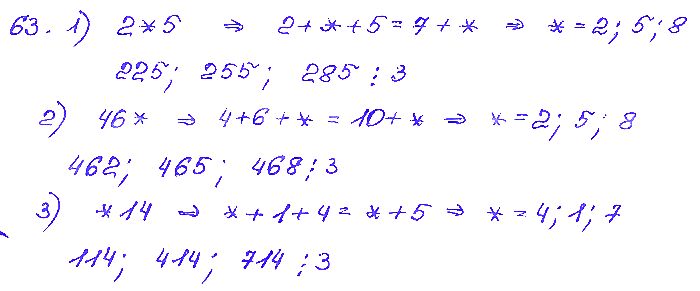 63. 1) 2*5 ⇒ 2+*+5=7+* ⇒ *=2; 5; 8
225; 255; 285 ⋮ 3
2) 46* ⇒ 4+6+*=10+* ⇒ *=2; 5; 8
462; 465; 468 ⋮ 3
3) *14 ⇒ *+1+4=*+5 ⇒ *=4; 1; 7
114; 414; 714 ⋮ 3